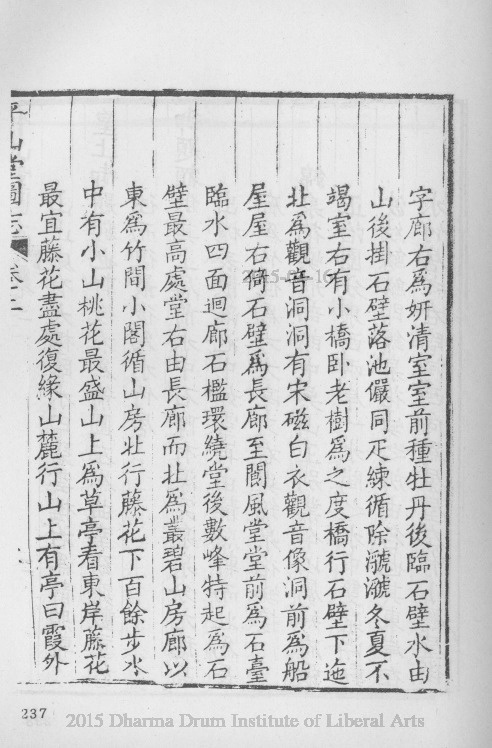 字廊右爲妍清室室前種牡丹後臨石壁水由
山後掛石壁落池儼同疋練循除㶁㶁冬夏不
竭室右有小橋卧老樹爲之度橋行石壁下迤
北爲觀音洞洞有宋磁白衣觀音像洞前爲船
屋屋右倚石壁爲長廊至閬風堂堂前爲石臺
臨水四面迴廊石檻環繞堂後數峰特起爲石
壁最高處堂右由長廊而北爲叢碧山房廊以
東爲竹間小閣循山房北行藤花下百餘步水
中有小山桃花最盛山上爲草亭看東岸藤花
最宜藤花盡處復緣山麓行山上有亭曰霞外
平山堂圖志
卷二
237
2015 Dharma Drum Institute of Liberal Arts